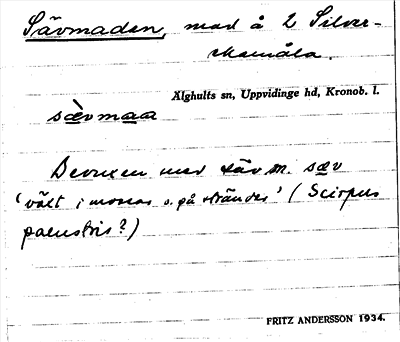 Sävmaden, mad å 2 Silver-
ekemåla.
Älghults sn, Uppvidinge hd, Kronob. l.
sævmaa
Bevuxen med säv m. sæv
'växt i mossar o. på stränder' (Scirpus
palustris?)
FRITZ ANDERSSON 1934.